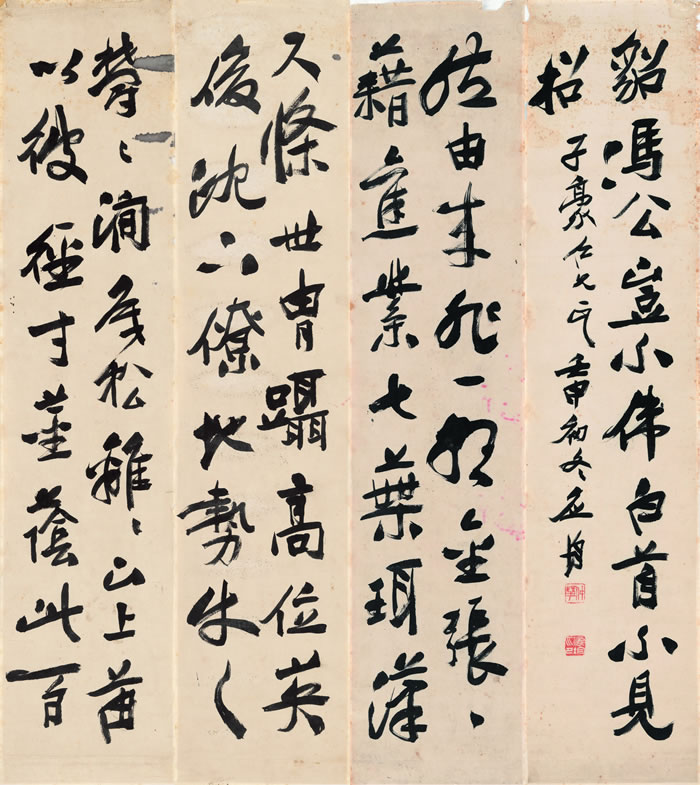 鬱〻澗底松離〻山上苗
以彼徑寸莖蔭此百
尺條世胄躡高位英
俊沈下僚地勢使之
然由来非一朝金張〻
藉舊業七葉珥漢
貂馮公豈不偉白首不見
招
子豪仁兄 壬申初冬